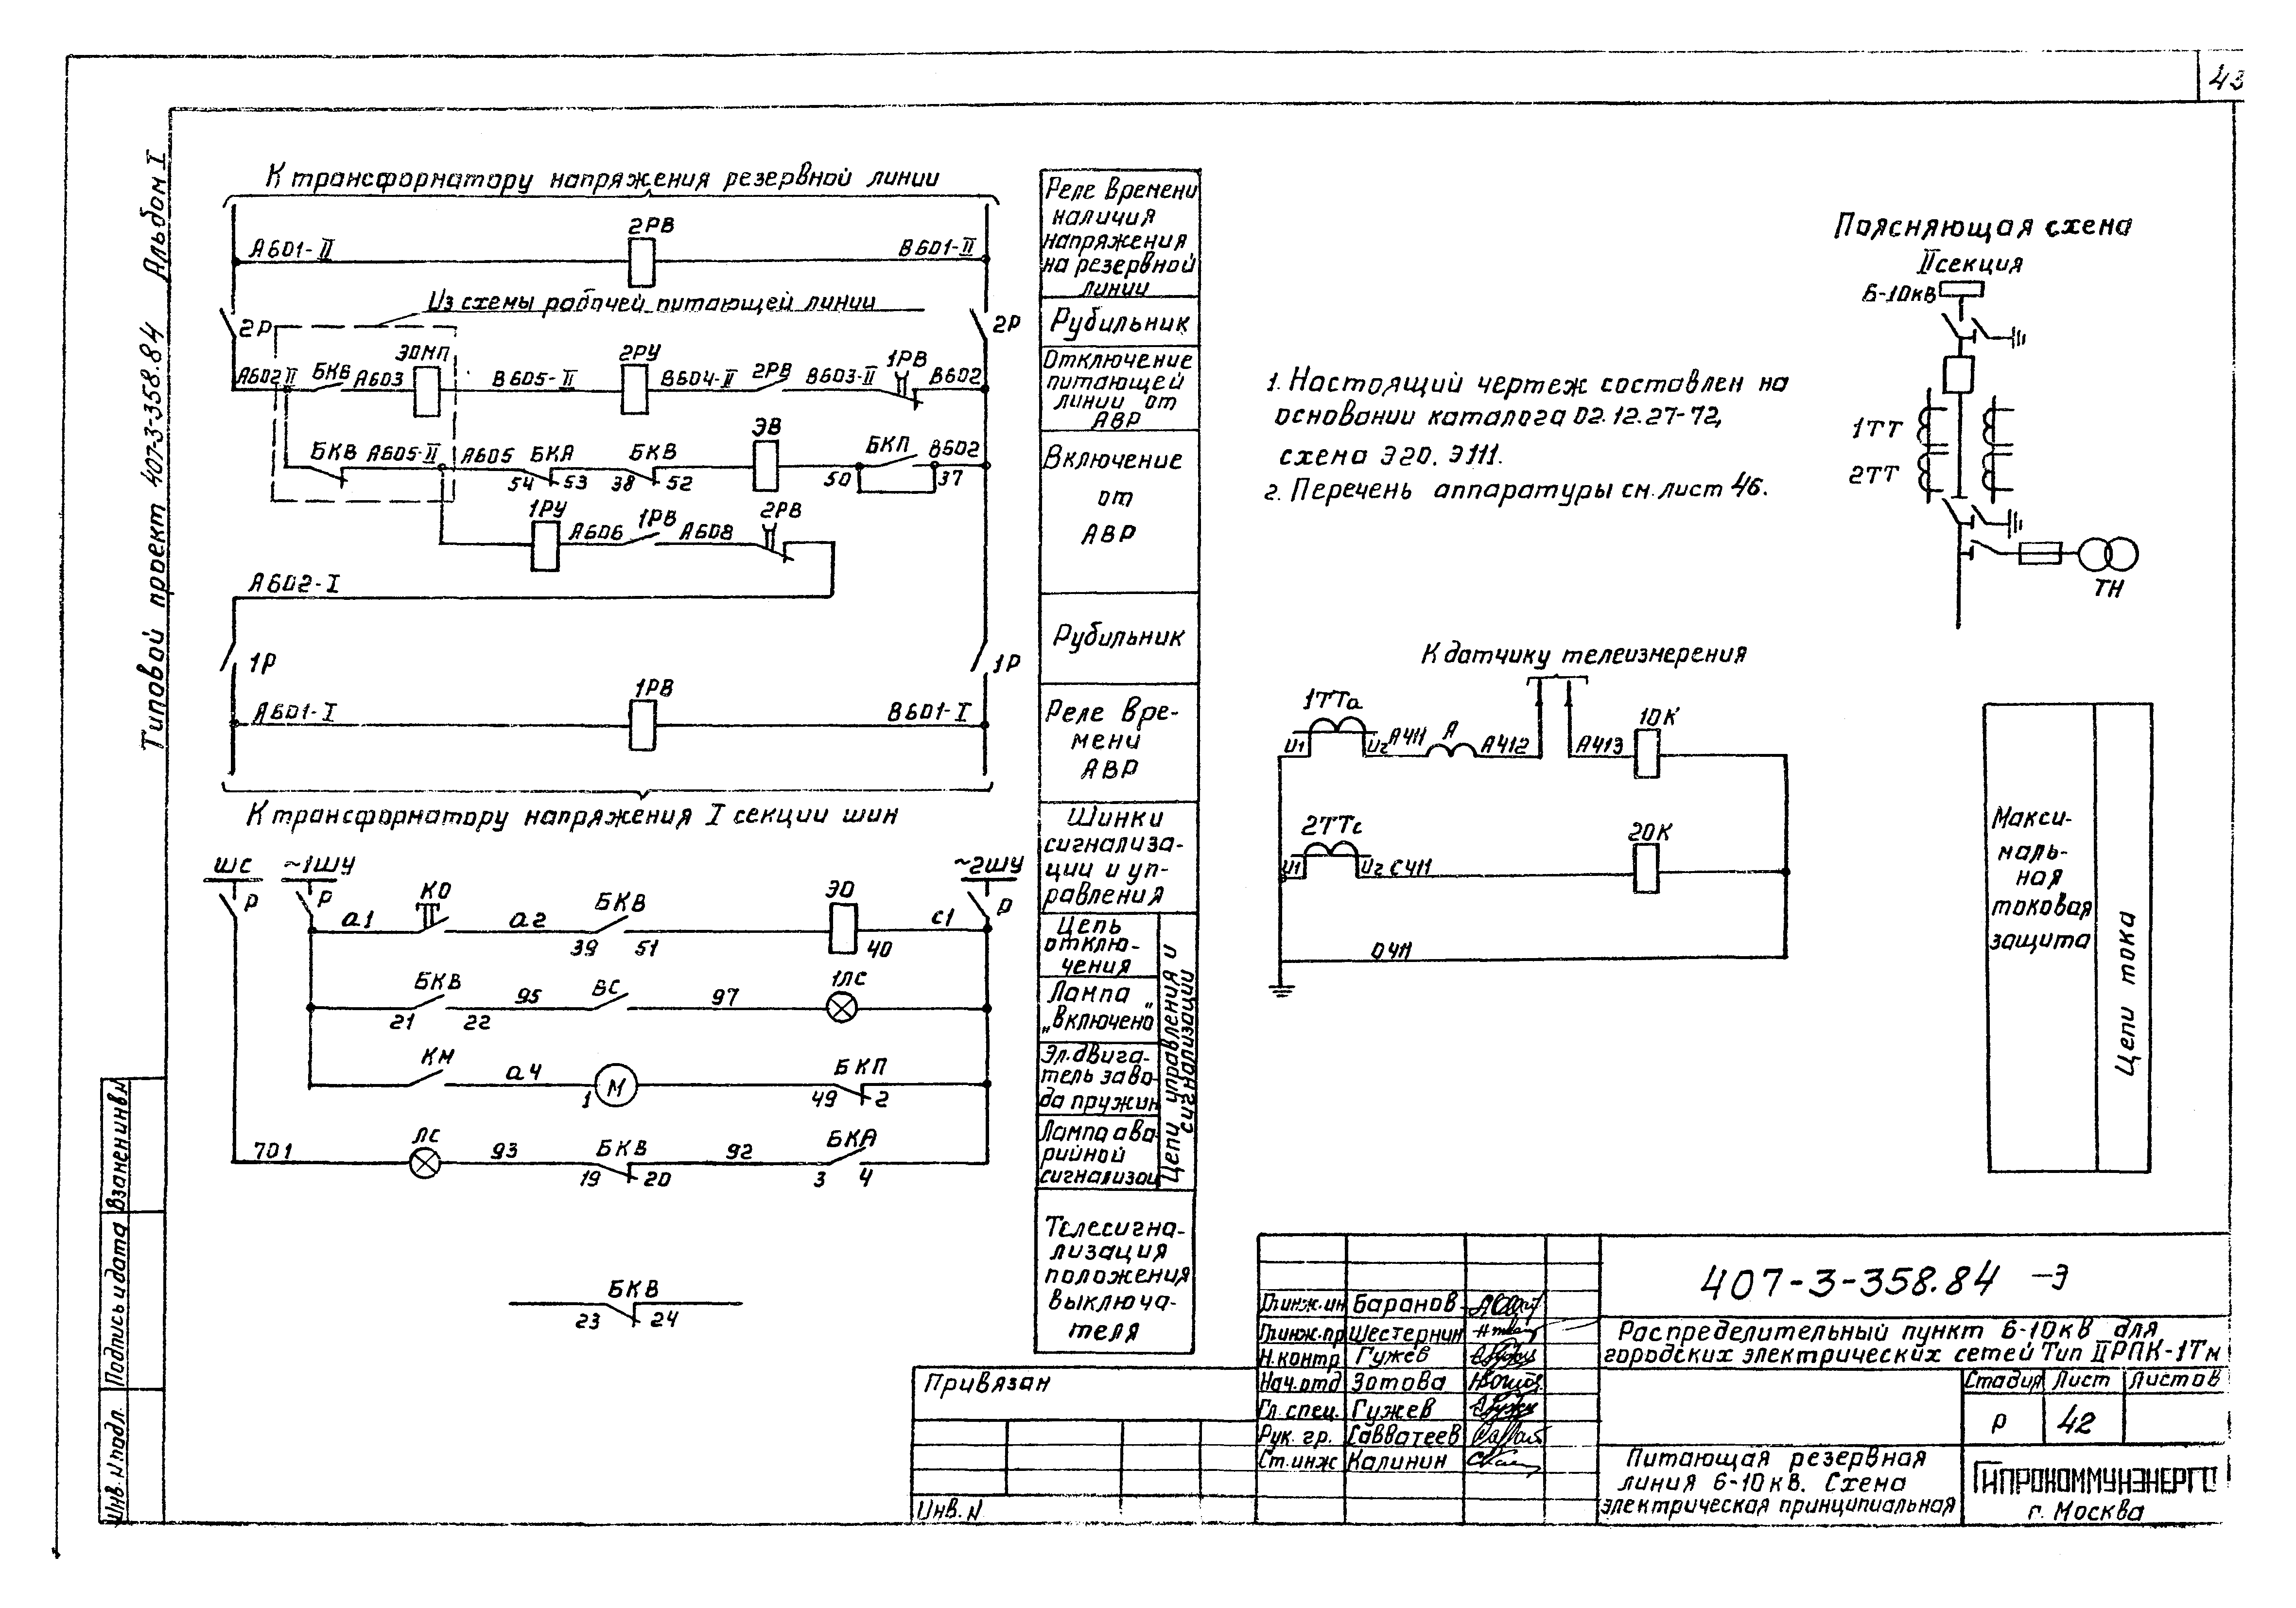 43
Типовой проект 407-3-358.84 Альбом I
К трансформатору напряжения резервной линии
А601-II
2РВ
В601-II
Из схемы рабочей питающей линии
2Р
2Р
А602 II
БКВ
А603
ЭОМП
В605-II
2РУ
В604-II
2РВ
В603-II
1РВ
В602
БКВ
А605-II
А605
БКА
54
53
БКВ
38
52
ЭВ
50
БКП
В602
37
1РУ
А606
1РВ
А608
2РВ
А602-I
1Р
1Р
А601-I
1РВ
В601-I
К трансформатору напряжения I секции шин
ШС
~1ШУ
~2ШУ
Р
Р
Р
а1
КО
а2
БКВ
39
51
ЭО
40
с1
БКВ
21
22
95
ВС
97
1ЛС
КМ
а4
1
М
БКП
49
2
701
ЛС
93
БКВ
19
20
92
БКА
3
4
БКВ
23
24
Реле времени
наличия
напряжения
на резервной
линии
Рубильник
Отключение
питающей
линии от
АВР
Включение
от
АВР
Рубильник
Реле вре-
мени
АВР
Шинки
сигнализа-
ции и уп-
равления
Цепь
отклю-
чения
Лампа
„Включено"
Эл.двига-
тель заво-
да пружин
Лампа ава-
рийной
сигнализац
Цепи управления и
сигнализации
Телесигна-
лизация
положения
выключа-
теля
1. Настоящий чертеж составлен на
основании каталога 02.12.27-72,
схема Э20. Э111.
2. Перечень аппаратуры см. лист 46.
Поясняющая схема
II секция
6-10кВ
1ТТ
2ТТ
ТН
К датчику телеизмерения
1ТТа
И1
И2
А411
А
А412
А413
10К
2ТТс
И1
И2
С411
20К
0411
Макси-
маль-
ная
токовая
защита
Цепи тока
Взам.инв.N
Подпись и дата
Инв. N подл.
Привязан
Инв. N
Гл.инж.ин Баранов
Гл.инж.пр Шестернин
Н.контр Гужев
Нач.отд Зотова
Гл.спец. Гужев
Рук. гр. Савватеев
Ст.инж Калинин
407-3-358.84 -Э
Распределительный пункт 6-10кВ для
городских электрических сетей Тип IIРПК-1Тм
Стадия Лист Листов
Р 42
Питающая резервная
линия 6-10кВ. Схема
электрическая принципиальная
ГИПРОКОММУНЭНЕРГО
г. Москва